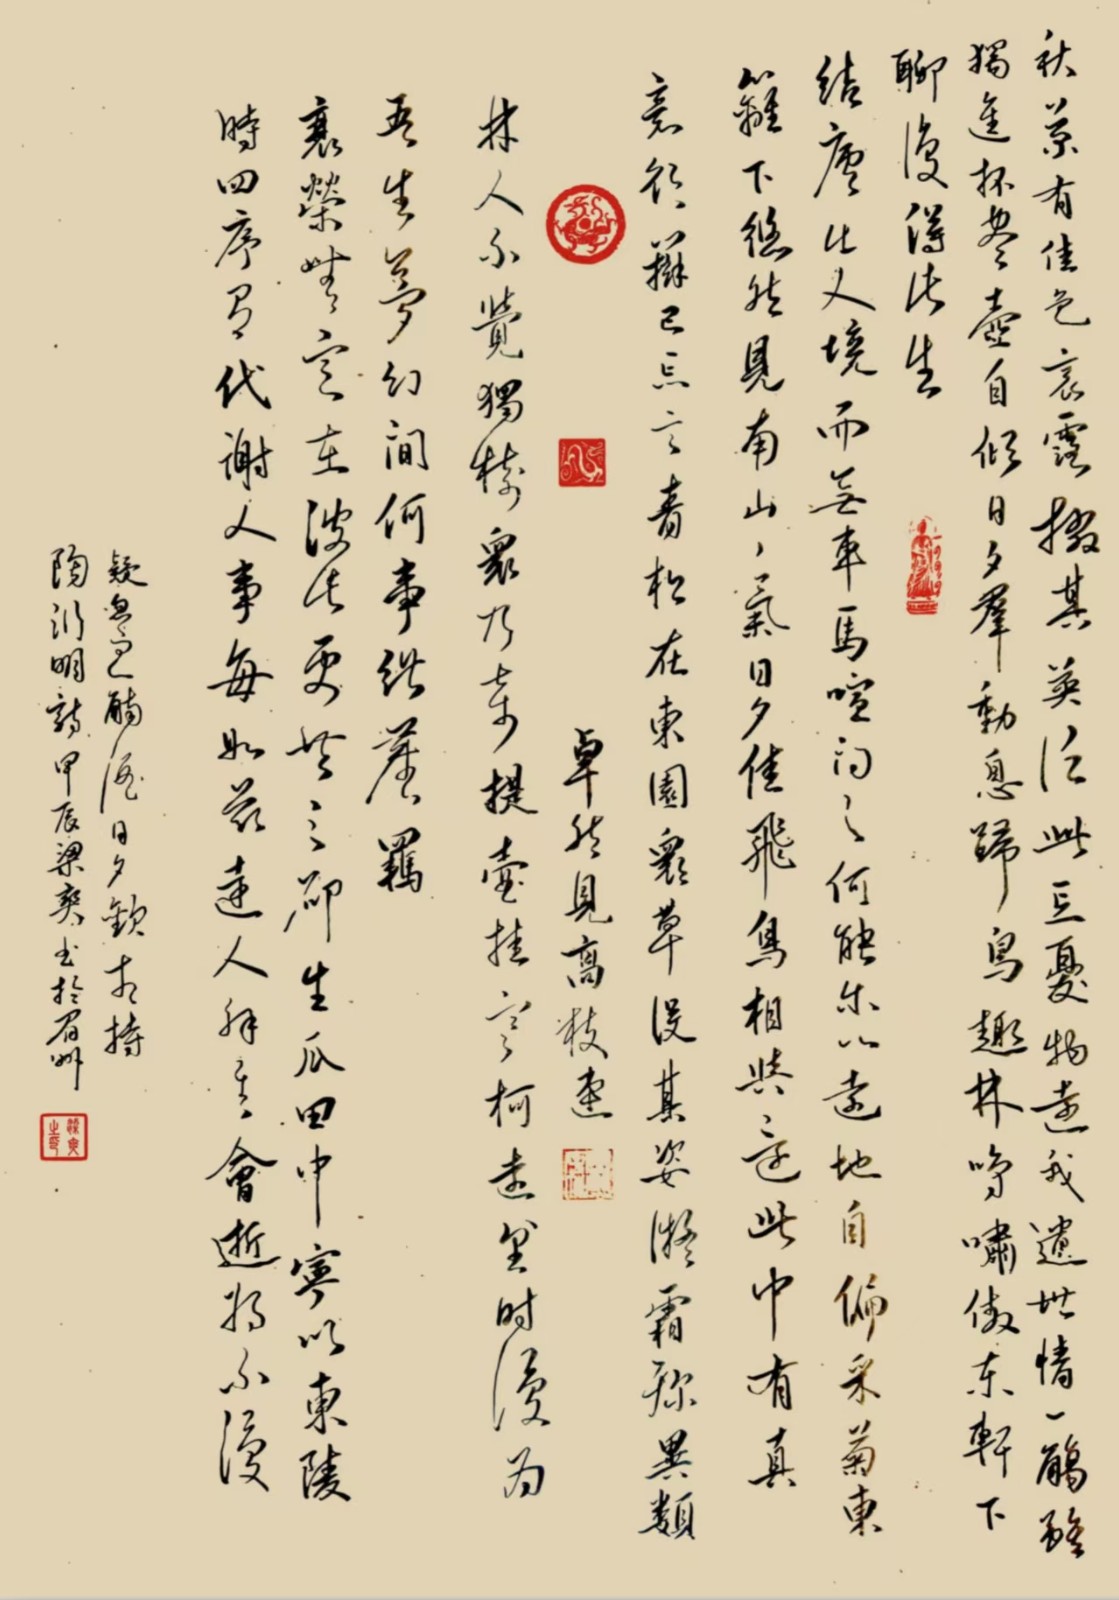 秋菊有佳色裛露掇其英汎此忘憂物遠我遺世情一觴雖
獨進杯盡壺自傾日夕羣動息歸鳥趣林鳴嘯傲東軒下
聊復得此生
結廬在人境而無車馬喧問君何能尔心遠地自偏采菊東
籬下悠然見南山山氣日夕佳飛鳥相與還此中有真
意欲辯已忘言青松在東園衆草沒其姿凝霜殄異類
卓然見高枝連
林人不覺獨樹衆乃奇提壺挂寒柯遠望時復為
吾生夢幻間何事紲塵羈
衰榮無定在彼此更共之邵生瓜田中寧似東陵
時四序有代謝人事每如茲達人解其會逝將不復
疑忽與一觴酒日夕歡相持
陶淵明詩甲辰梁爽書於眉州